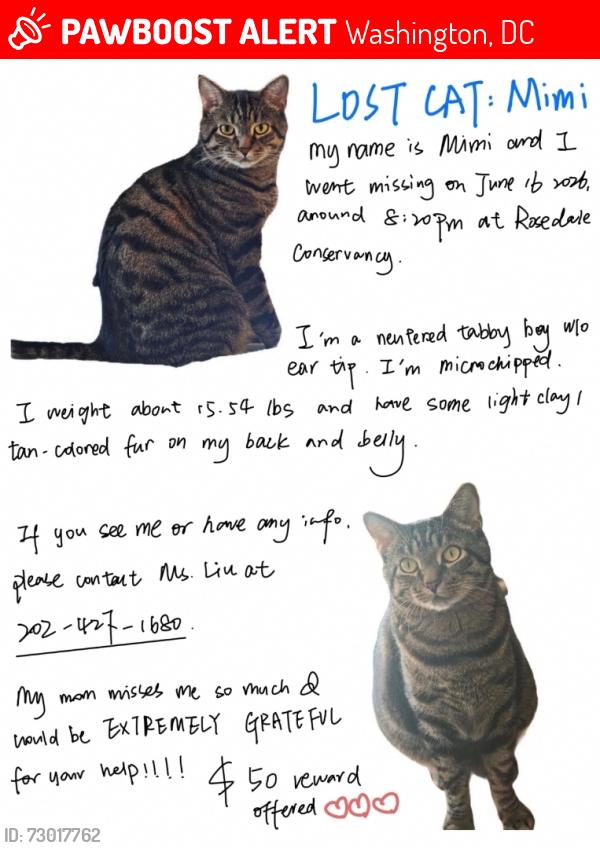 PAWBOOST ALERT Washington, DC
LOST CAT: Mimi
My name is Mimi and I
went missing on June 16 2026,
around 8:20pm at Rosedale
Conservancy.
I'm a neutered tabby boy w/o
ear tip. I'm microchipped.
I weight about 15.54 lbs and have some light clay /
tan-colored fur on my back and belly.
If you see me or have any info,
please contact Ms. Liu at
202-427-1680.
My mom misses me so much &
would be EXTREMELY GRATEFUL
for your help!!!!
$50 reward
offered ♡♡♡
ID: 73017762